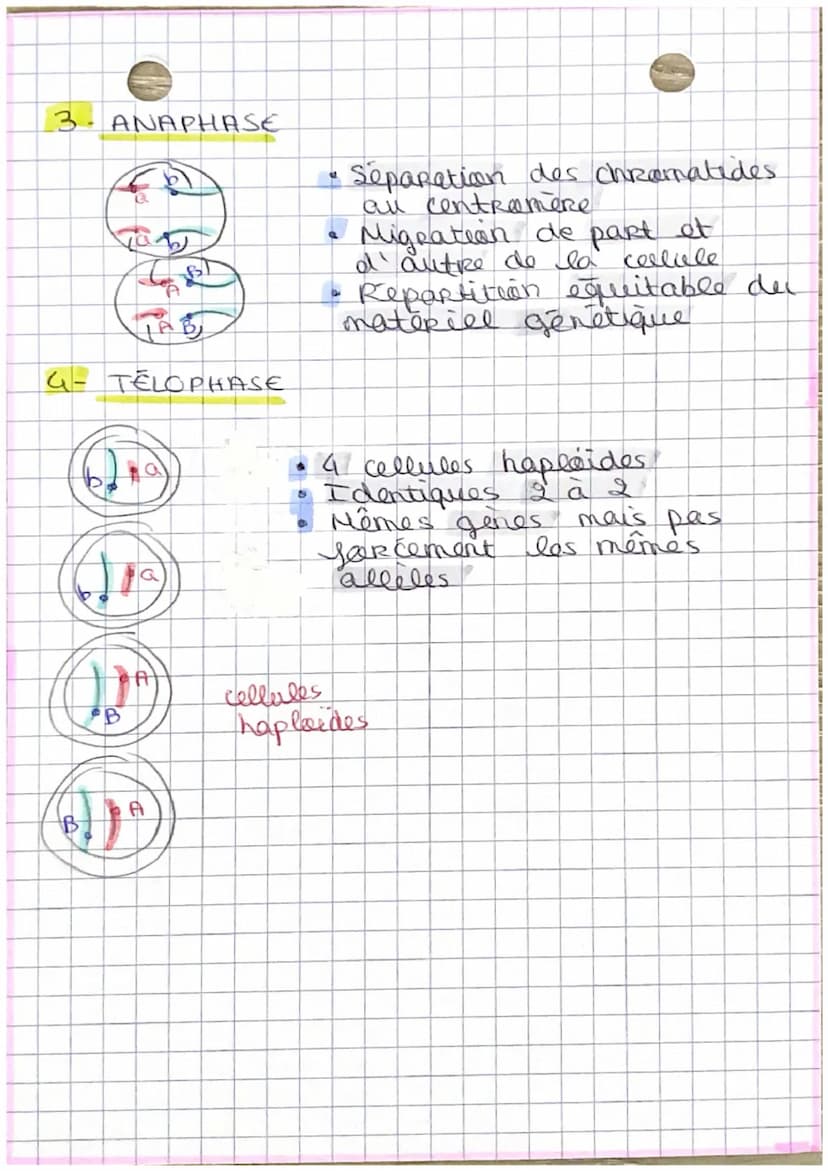 3. ANAPHASE
b
a
a b
B
A
A B
• Séparation des chromatides
au centromère
• Migration de part et
d'autre de la cellule
• Répartition équitable du
matériel génétique
4- TÉLOPHASE
b a
b a
A
B
B A
• 4 cellules haploïdes
• Identiques 2 à 2
• Mêmes gènes mais pas
forcément les mêmes
allèles
cellules
haploïdes